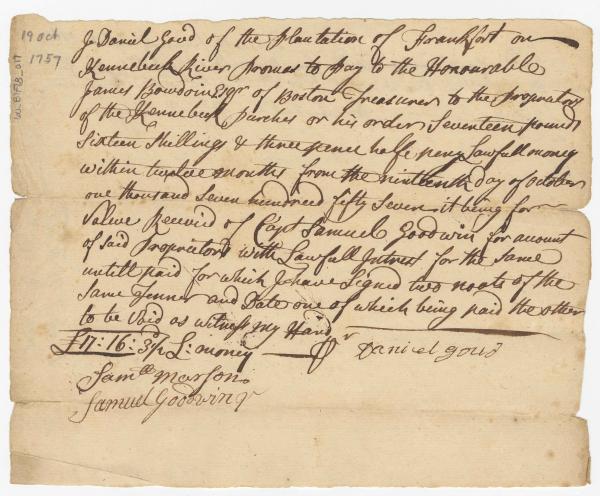 19 oct
1757
I Daniel Goud of the plantation of Frankfort on
Kennebeck River promas to pay to the Honourable
James Bowdoin Esqr of Boston Treasurer to the Propriators
of the Kennebeck purches or his order Seventeen pounds
Sixteen Shillings & three pence half peney Lawfull money
within twelve months from the nineteenth day of October
one thousand Seven hundred fifty Seven it being for
Value Receivd of Capt Samuel Goodwin for amount
of said Propriators with Lawfull Intrest for the Same
untill paid for which I have Signed two noats of the
Same Tenner and Date one of which being paid the other
to be Void as witness my Hand
£17:16:3½ L: money Pr Daniel goud
Samll Marson
Samuel Goodwin Jr